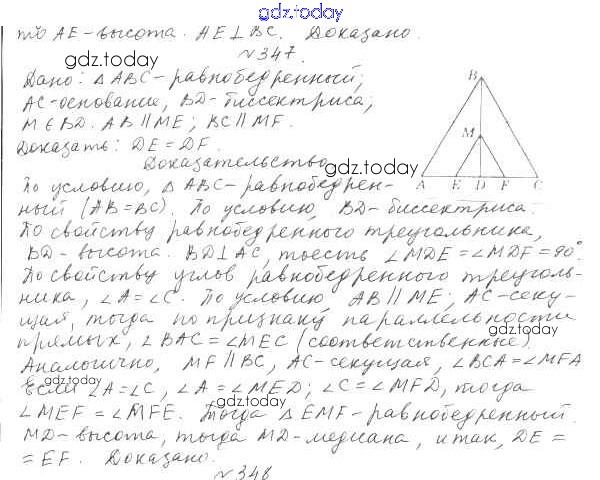 gdz.today
то AE-высота. AE⊥BC. Доказано.
gdz.today
№347.
Дано: △ABC-равнобедренный;
AC-основание, BD-биссектриса;
M∈BD. AB∥ME; BC∥MF.
Доказать: DE=DF.
Доказательство
gdz.today
B
M
A E D F C
По условию, △ABC-равнобедрен-
ный (AB=BC). По условию, BD-биссектриса.
По свойству равнобедренного треугольника,
BD-высота. BD⊥AC, тоесть ∠MDE=∠MDF=90°.
По свойству углов равнобедренного треуголь-
ника, ∠A=∠C. По условию AB∥ME; AC-секу-
щая, тогда по признаку параллельности
gdz.today
прямых, ∠BAC=∠MEC (соответственные).
Аналогично, MF∥BC, AC-секущая, ∠BCA=∠MFA
gdz.today
Если ∠A=∠C, ∠A=∠MED; ∠C=∠MFD, тогда
gdz.today
∠MEF=∠MFE. Тогда △EMF-равнобедренный.
MD-высота, тогда MD-медиана, итак, DE=
=EF. Доказано.
№348